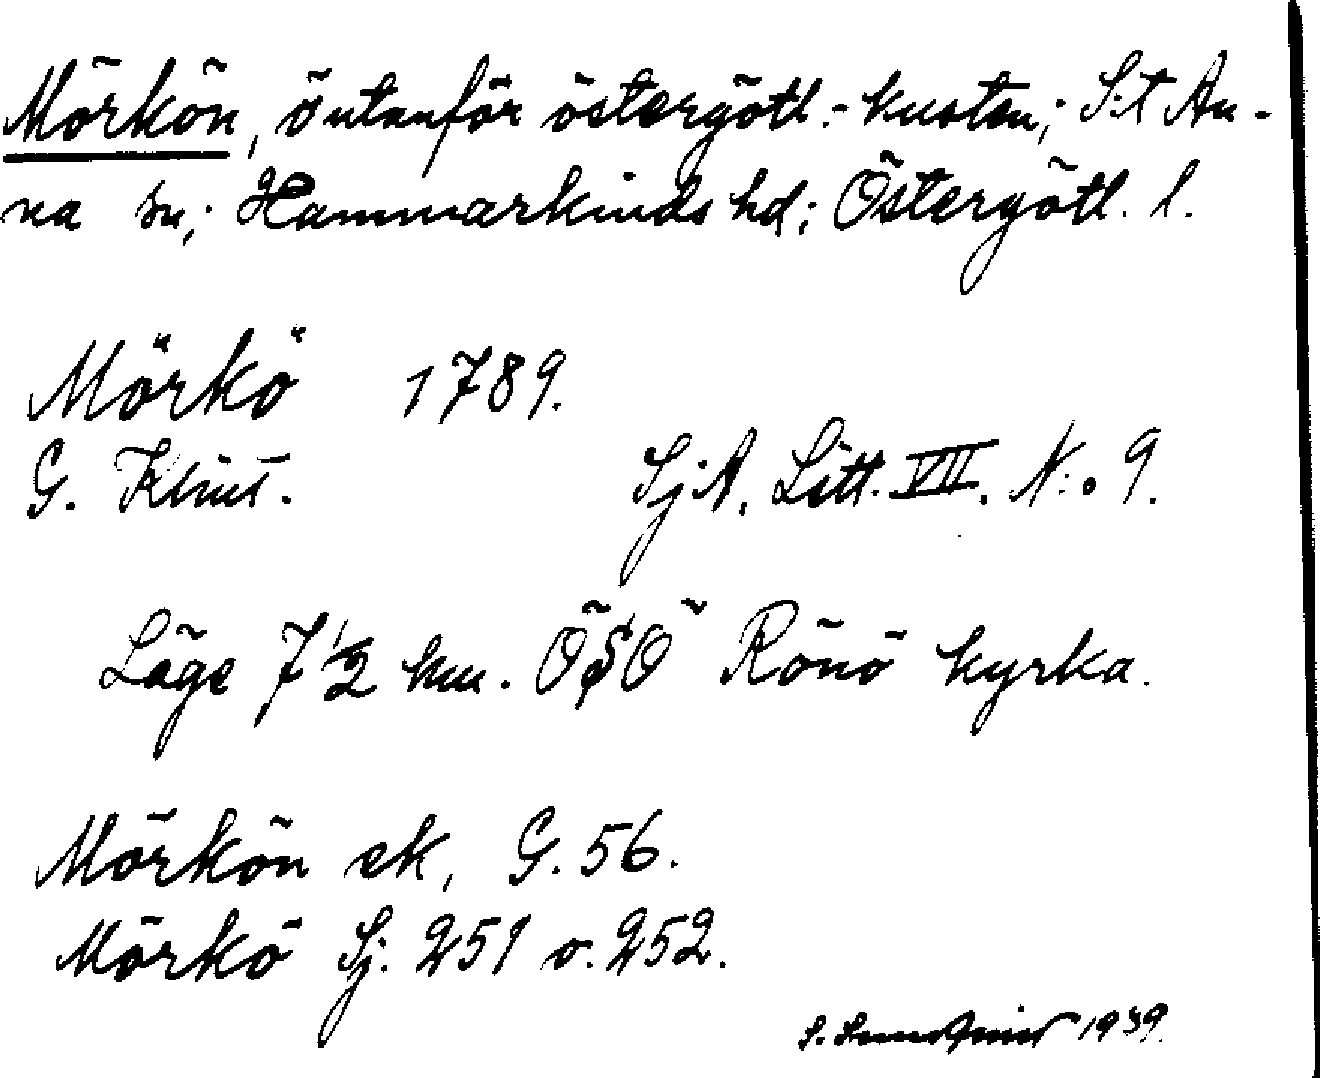 Mörkön, ö utanför östergötl.- kusten; S:t An-
na sn; Hammarkinds hd; Östergötl. l.
Mörkö 1789.
G. Klint. Sj.A. Litt. VII. N:o 9.
Läge 7 1/2 km. ÖSÖ Rönö kyrka.
Mörkön ek, G. 56.
Mörkö Sj. 251 o. 252.
S. 1939.